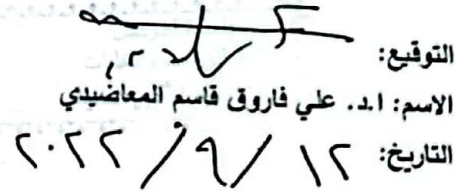 التوقيع:
الاسم: ا.د. علي فاروق قاسم المعاضيدي
التاريخ: ١٢ / ٩ / ٢٠٢٢